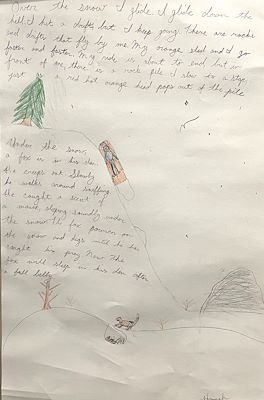 Over the snow I glide. I glide down the
hill. I hit a drift, but I keep going. There are rocks
and drifts that fly by me. My orange sled and I go
faster and faster. My ride is about to end, but in
front of me, there is a rock pile. I slow to a stop,
just a red hot orange head pops out of the pile
Under the snow,
a fox in in his den.
She creeps out. Slowly
he walks around sniffing.
She caught a scent of
a mouse sleeping soundly under
the snow. The fox pounces on
the snow and digs until he has
caught his prey. Now the
fox will sleep in his den after
a full belly.